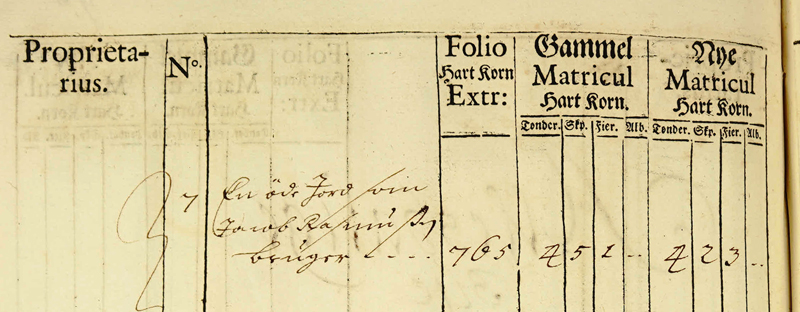 Proprieta-
rius.
No.
Folio
Hart Korn
Extr:
Gammel
Matricul
Hart Korn.
Tonder. Skp. Fier. Alb.
Nye
Matricul
Hart Korn.
Tonder. Skp. Fier. Alb.
7 En öde Jord som
Jacob Rasmuß
bruger - - - - 765 4 5 1 .. 4 2 3 ..